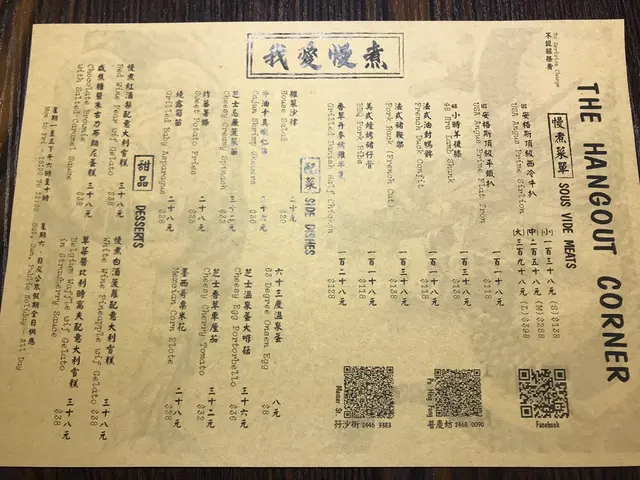 THE HANGOUT CORNER
我愛慢煮
No Service Charge
不設服務費
慢煮菜單 SOUS VIDE MEATS
安格斯頂級西冷牛扒
USA Angus Prime Sirloin
(小) 一百三十八元 (S)$138
(中) 二百五十八元 (M)$258
(大) 三百九十八元 (L)$398
安格斯頂級平鐵扒
USA Angus Prime Flat Iron
一百一十八元
$118
48小時羊後膝
48 Hrs Lamb Shank
一百三十八元
$138
法式油封鴨髀
French Duck Confit
一百一十八元
$118
法式豬鞍架
Pork Rack (French Cut)
一百三十八元
$138
美式燒豬仔骨
BBQ Pork Ribs
一百一十八元
$118
香草丹麥燒雞半隻
Grilled Danish Half Chicken
一百二十八元
$128
配菜 SIDE DISHES
雜菜沙律
House Salad
二十八元
Cajun Shrimp Skewers
三十六元
$36
芝士忌廉菠菜
Cheesy Creamy Spinach
炸薯薯條
Spicy Potato Fries
二十八元
$28
燒露筍苗
Grilled Baby Asparagus
三十八元
$38
六十三度溫泉蛋
63 Degree Onsen Egg
八元
$8
芝士溫泉蛋大啡菇
Cheesy Egg Portorbello
三十六元
$36
芝士香草車厘茄
Cheesy Cherry Tomato
三十二元
$32
墨西哥香米花
Mexican Corn Elote
二十八元
$28
甜品 DESSERTS
慢煮紅酒梨配意大利雪糕
Red Wine Pear wif Gelato
三十八元
$38
咸焦糖醬朱古力布朗尼蛋糕
Chocolate Brownie
With Salted Caramel Sauce
三十八元
$38
慢煮白酒菠蘿配意大利雪糕
White Wine Pineapple wif Gelato
三十八元
$38
草莓醬比利時窩夫配意大利雪糕
Belgium Waffle wif Gelato
in Strawberry Sauce
三十八元
$38
星期一至五下午六時至十時
星期六、日及公眾假期全日供應
Sat, Sun, Public Holiday: All Day
Facebook
Po Hing Fong
普慶坊 2468 0090
Mercer St.
孖沙街 2446 3883